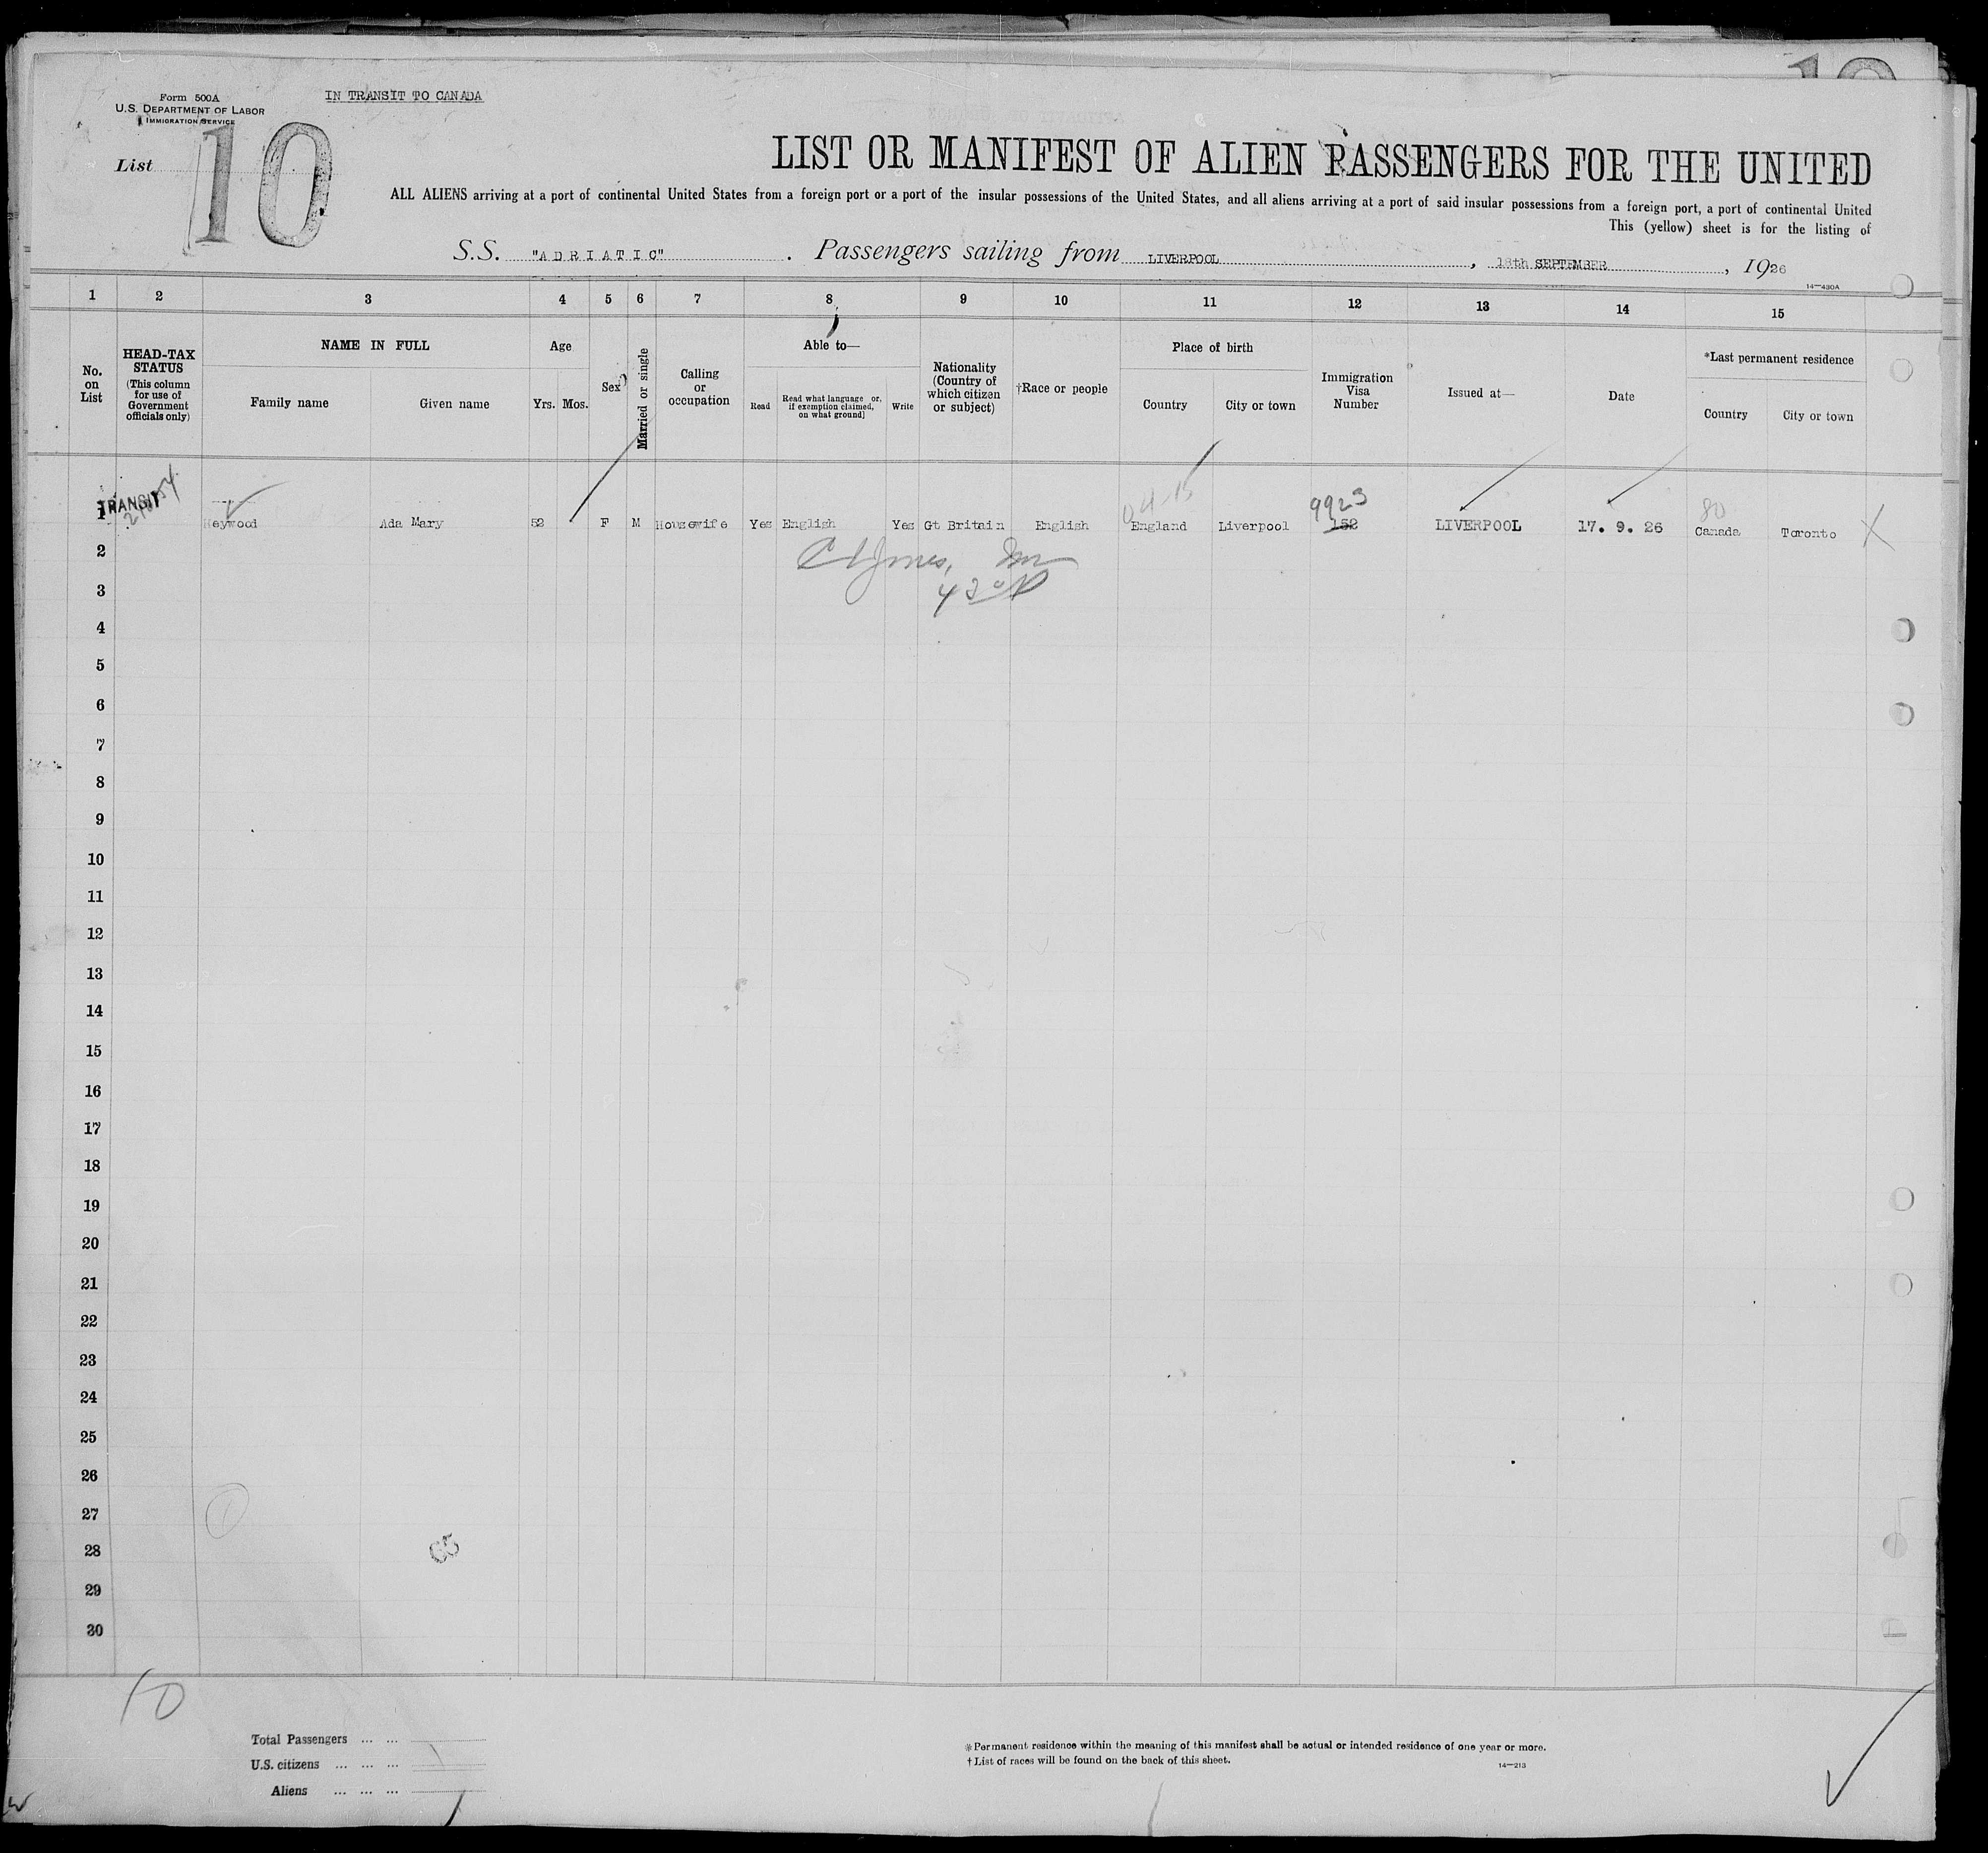 Form 500A
U.S. DEPARTMENT OF LABOR
IMMIGRATION SERVICE
IN TRANSIT TO CANADA
List 10
LIST OR MANIFEST OF ALIEN PASSENGERS FOR THE UNITED
ALL ALIENS arriving at a port of continental United States from a foreign port or a port of the insular possessions of the United States, and all aliens arriving at a port of said insular possessions from a foreign port, a port of continental United
This (yellow) sheet is for the listing of
S.S. "ADRIATIC". Passengers sailing from LIVERPOOL, 18th SEPTEMBER, 1926
14—430A
1 2 3 4 5 6 7 8 9 10 11 12 13 14 15
No. on List
HEAD-TAX STATUS (This column for use of Government officials only)
NAME IN FULL
Family name
Given name
Age
Yrs. Mos.
Sex
Married or single
Calling or occupation
Able to—
Read
Read what language or, if exemption claimed, on what ground]
Write
Nationality (Country of which citizen or subject)
†Race or people
Place of birth
Country
City or town
Immigration Visa Number
Issued at—
Date
*Last permanent residence
Country
City or town
TRANSIT
9923
80
1 Heywood Ada Mary 52 F M Housewife Yes English Yes Gt Britain English England Liverpool 152 LIVERPOOL 17. 9. 26 Canada Toronto X
2
3
4
5
6
7
8
9
10
11
12
13
14
15
16
17
18
19
20
21
22
23
24
25
26
27
28
65
29
30
10
Total Passengers ... ...
U.S. citizens ... ... ...
Aliens ... ... ...
*Permanent residence within the meaning of this manifest shall be actual or intended residence of one year or more.
†List of races will be found on the back of this sheet.
14—213